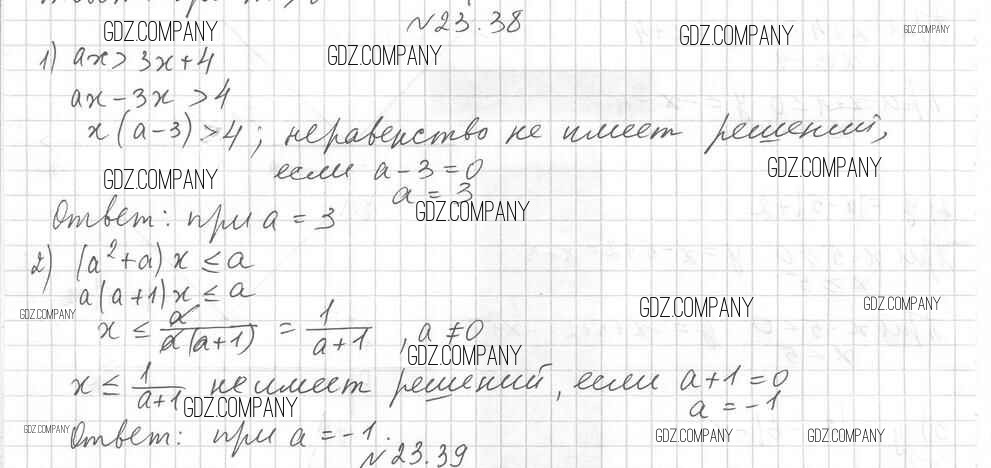 №23.38
GDZ.COMPANY GDZ.COMPANY GDZ.COMPANY GDZ.COMPANY
1) ax > 3x+4
ax-3x >4
x(a-3)>4; неравенство не имеет решений,
GDZ.COMPANY
если a-3=0
GDZ.COMPANY
a = 3
GDZ.COMPANY
Ответ: при a = 3
2) (a²+a) x ≤ a
a(a+1)x ≤ a
GDZ.COMPANY GDZ.COMPANY GDZ.COMPANY
x ≤ a/(a(a+1)) = 1/(a+1), a ≠ 0
GDZ.COMPANY
x ≤ 1/(a+1) не имеет решений, если a+1=0
GDZ.COMPANY
a = -1
GDZ.COMPANY GDZ.COMPANY GDZ.COMPANY
Ответ: при a = -1.
№23.39